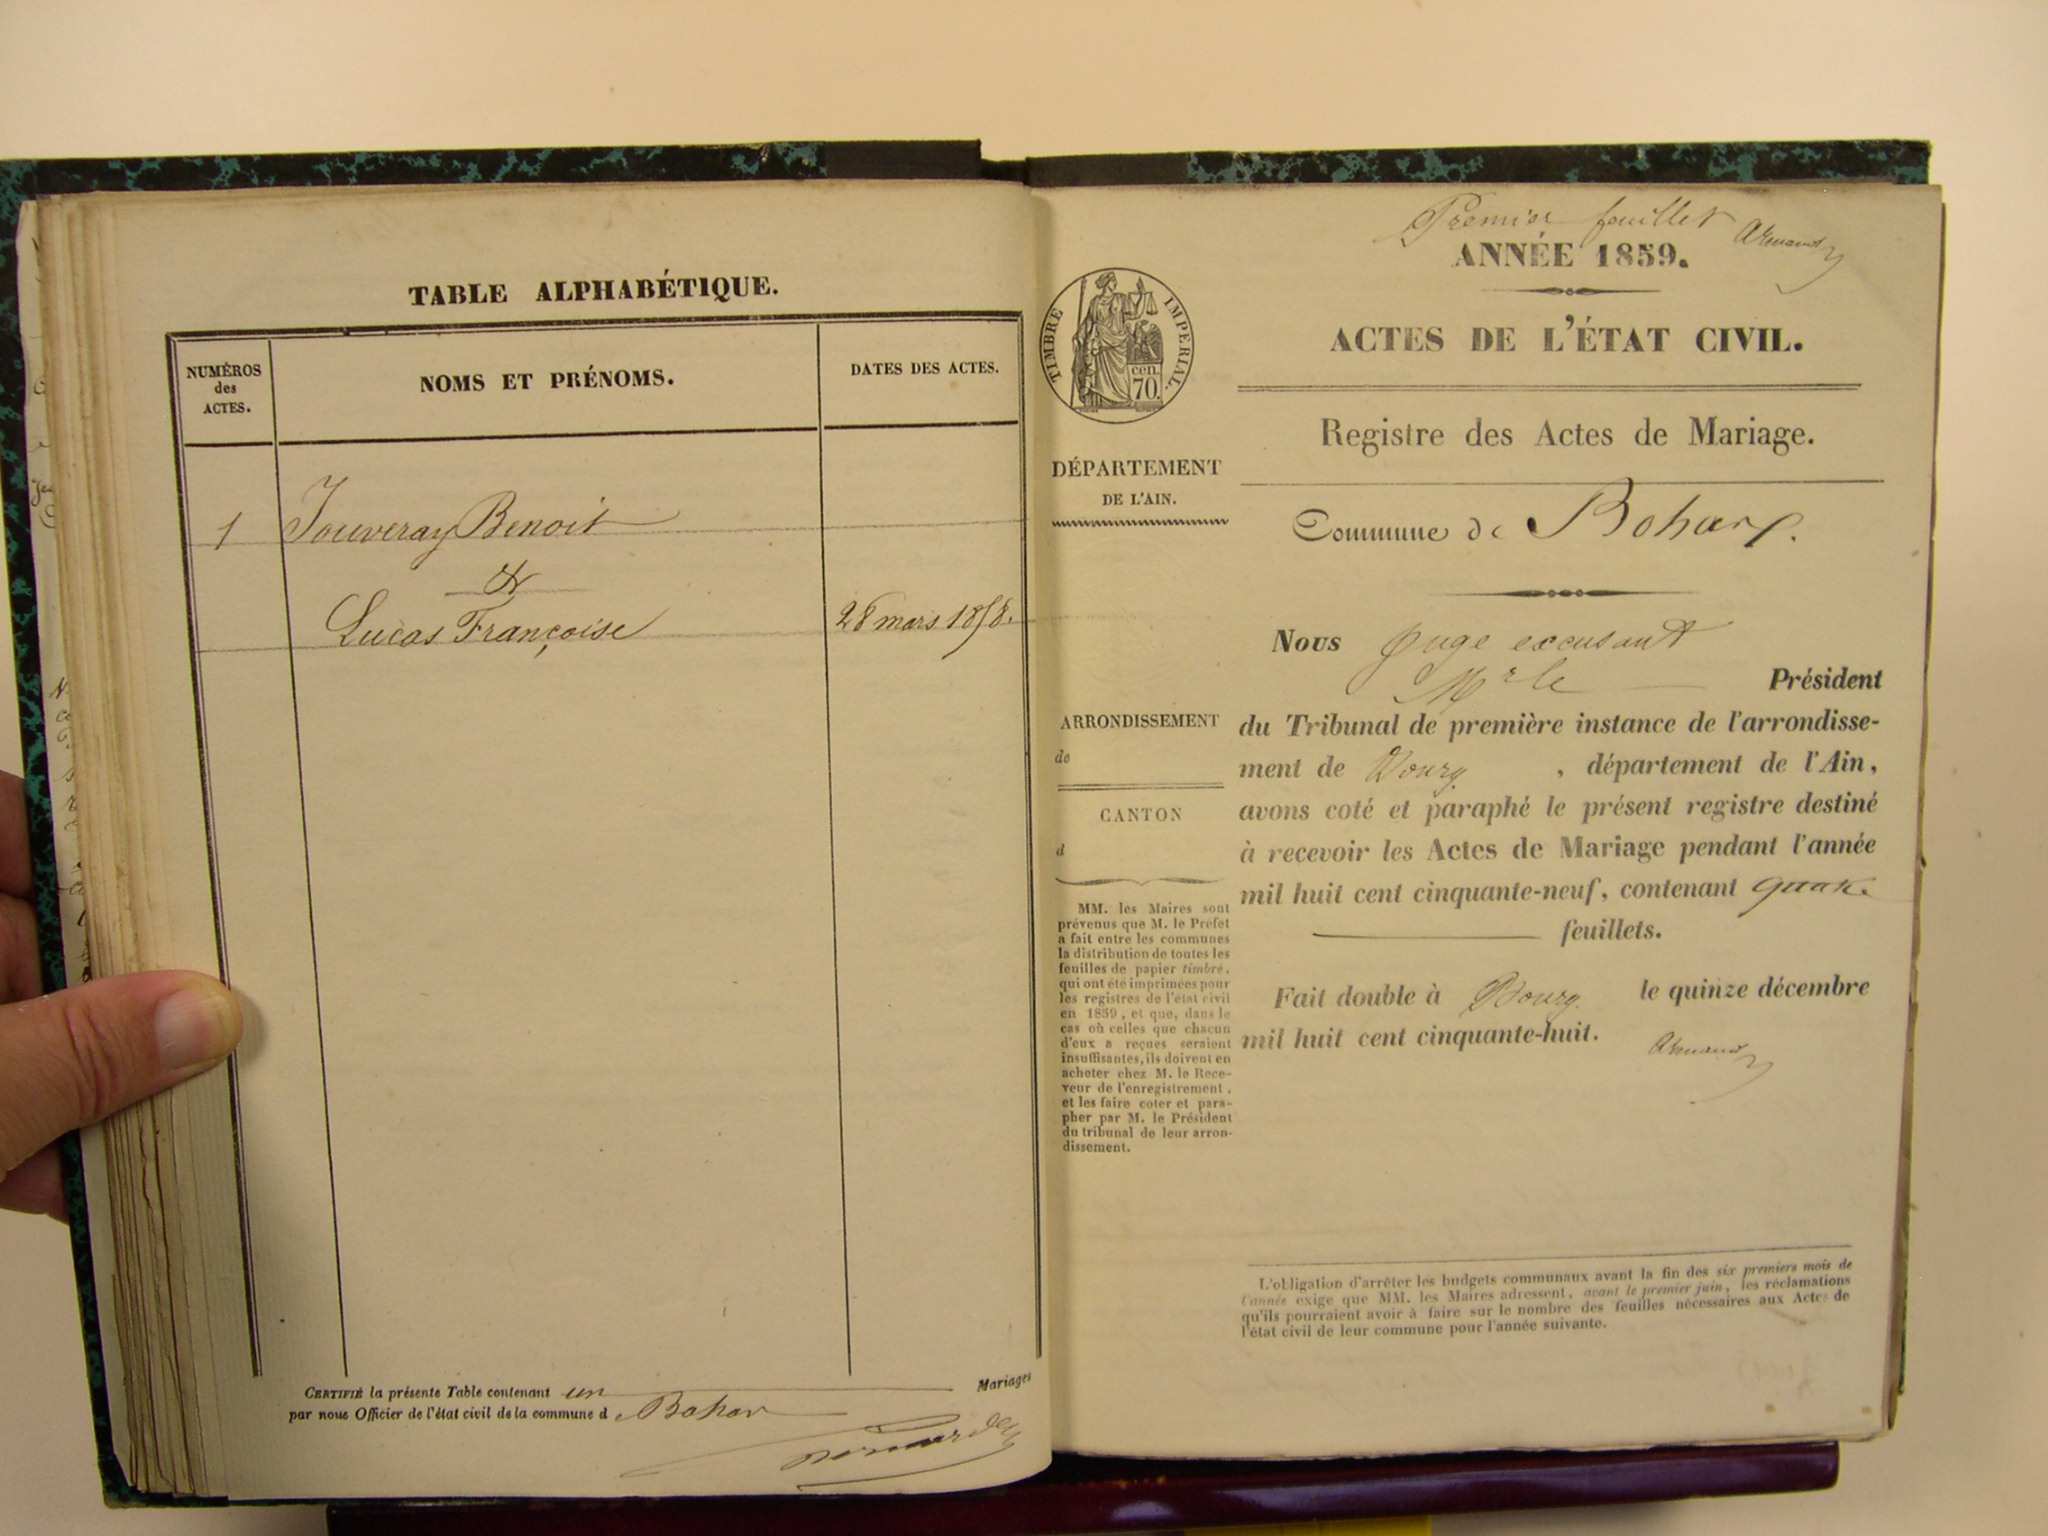 TABLE ALPHABÉTIQUE.
NUMÉROS
des
ACTES.
NOMS ET PRÉNOMS.
DATES DES ACTES.
1 Jouveray Benoit
&
Lucas Françoise 28 mars 1858.
CERTIFIÉ la présente Table contenant un Mariages
par nous Officier de l'état civil de la commune d e Bohas
Premier feuillet
ANNÉE 1859.
TIMBRE IMPERIAL.
cen.
70.
ACTES DE L'ÉTAT CIVIL.
Registre des Actes de Mariage.
DÉPARTEMENT
DE L'AIN.
Commune de Bohas.
ARRONDISSEMENT
de
CANTON
d
MM. les Maires sont
prévenus que M. le Préfet
a fait entre les communes
la distribution de toutes les
feuilles de papier timbré,
qui ont été imprimées pour
les registres de l'état civil
en 1859, et que, dans le
cas où celles que chacun
d'eux a reçues seraient
insuffisantes, ils doivent en
acheter chez M. le Rece-
veur de l'enregistrement,
et les faire coter et para-
pher par M. le Président
du tribunal de leur arron-
dissement.
Nous Juge excusant
Mr le Président
du Tribunal de première instance de l'arrondisse-
ment de Bourg, département de l'Ain,
avons coté et paraphé le présent registre destiné
à recevoir les Actes de Mariage pendant l'année
mil huit cent cinquante-neuf, contenant quatre
feuillets.
Fait double à Bourg le quinze décembre
mil huit cent cinquante-huit.
L'obligation d'arrêter les budgets communaux avant la fin des six premiers mois de
l'année exige que MM. les Maires adressent, avant le premier juin, les réclamations
qu'ils pourraient avoir à faire sur le nombre des feuilles nécessaires aux Actes de
l'état civil de leur commune pour l'année suivante.